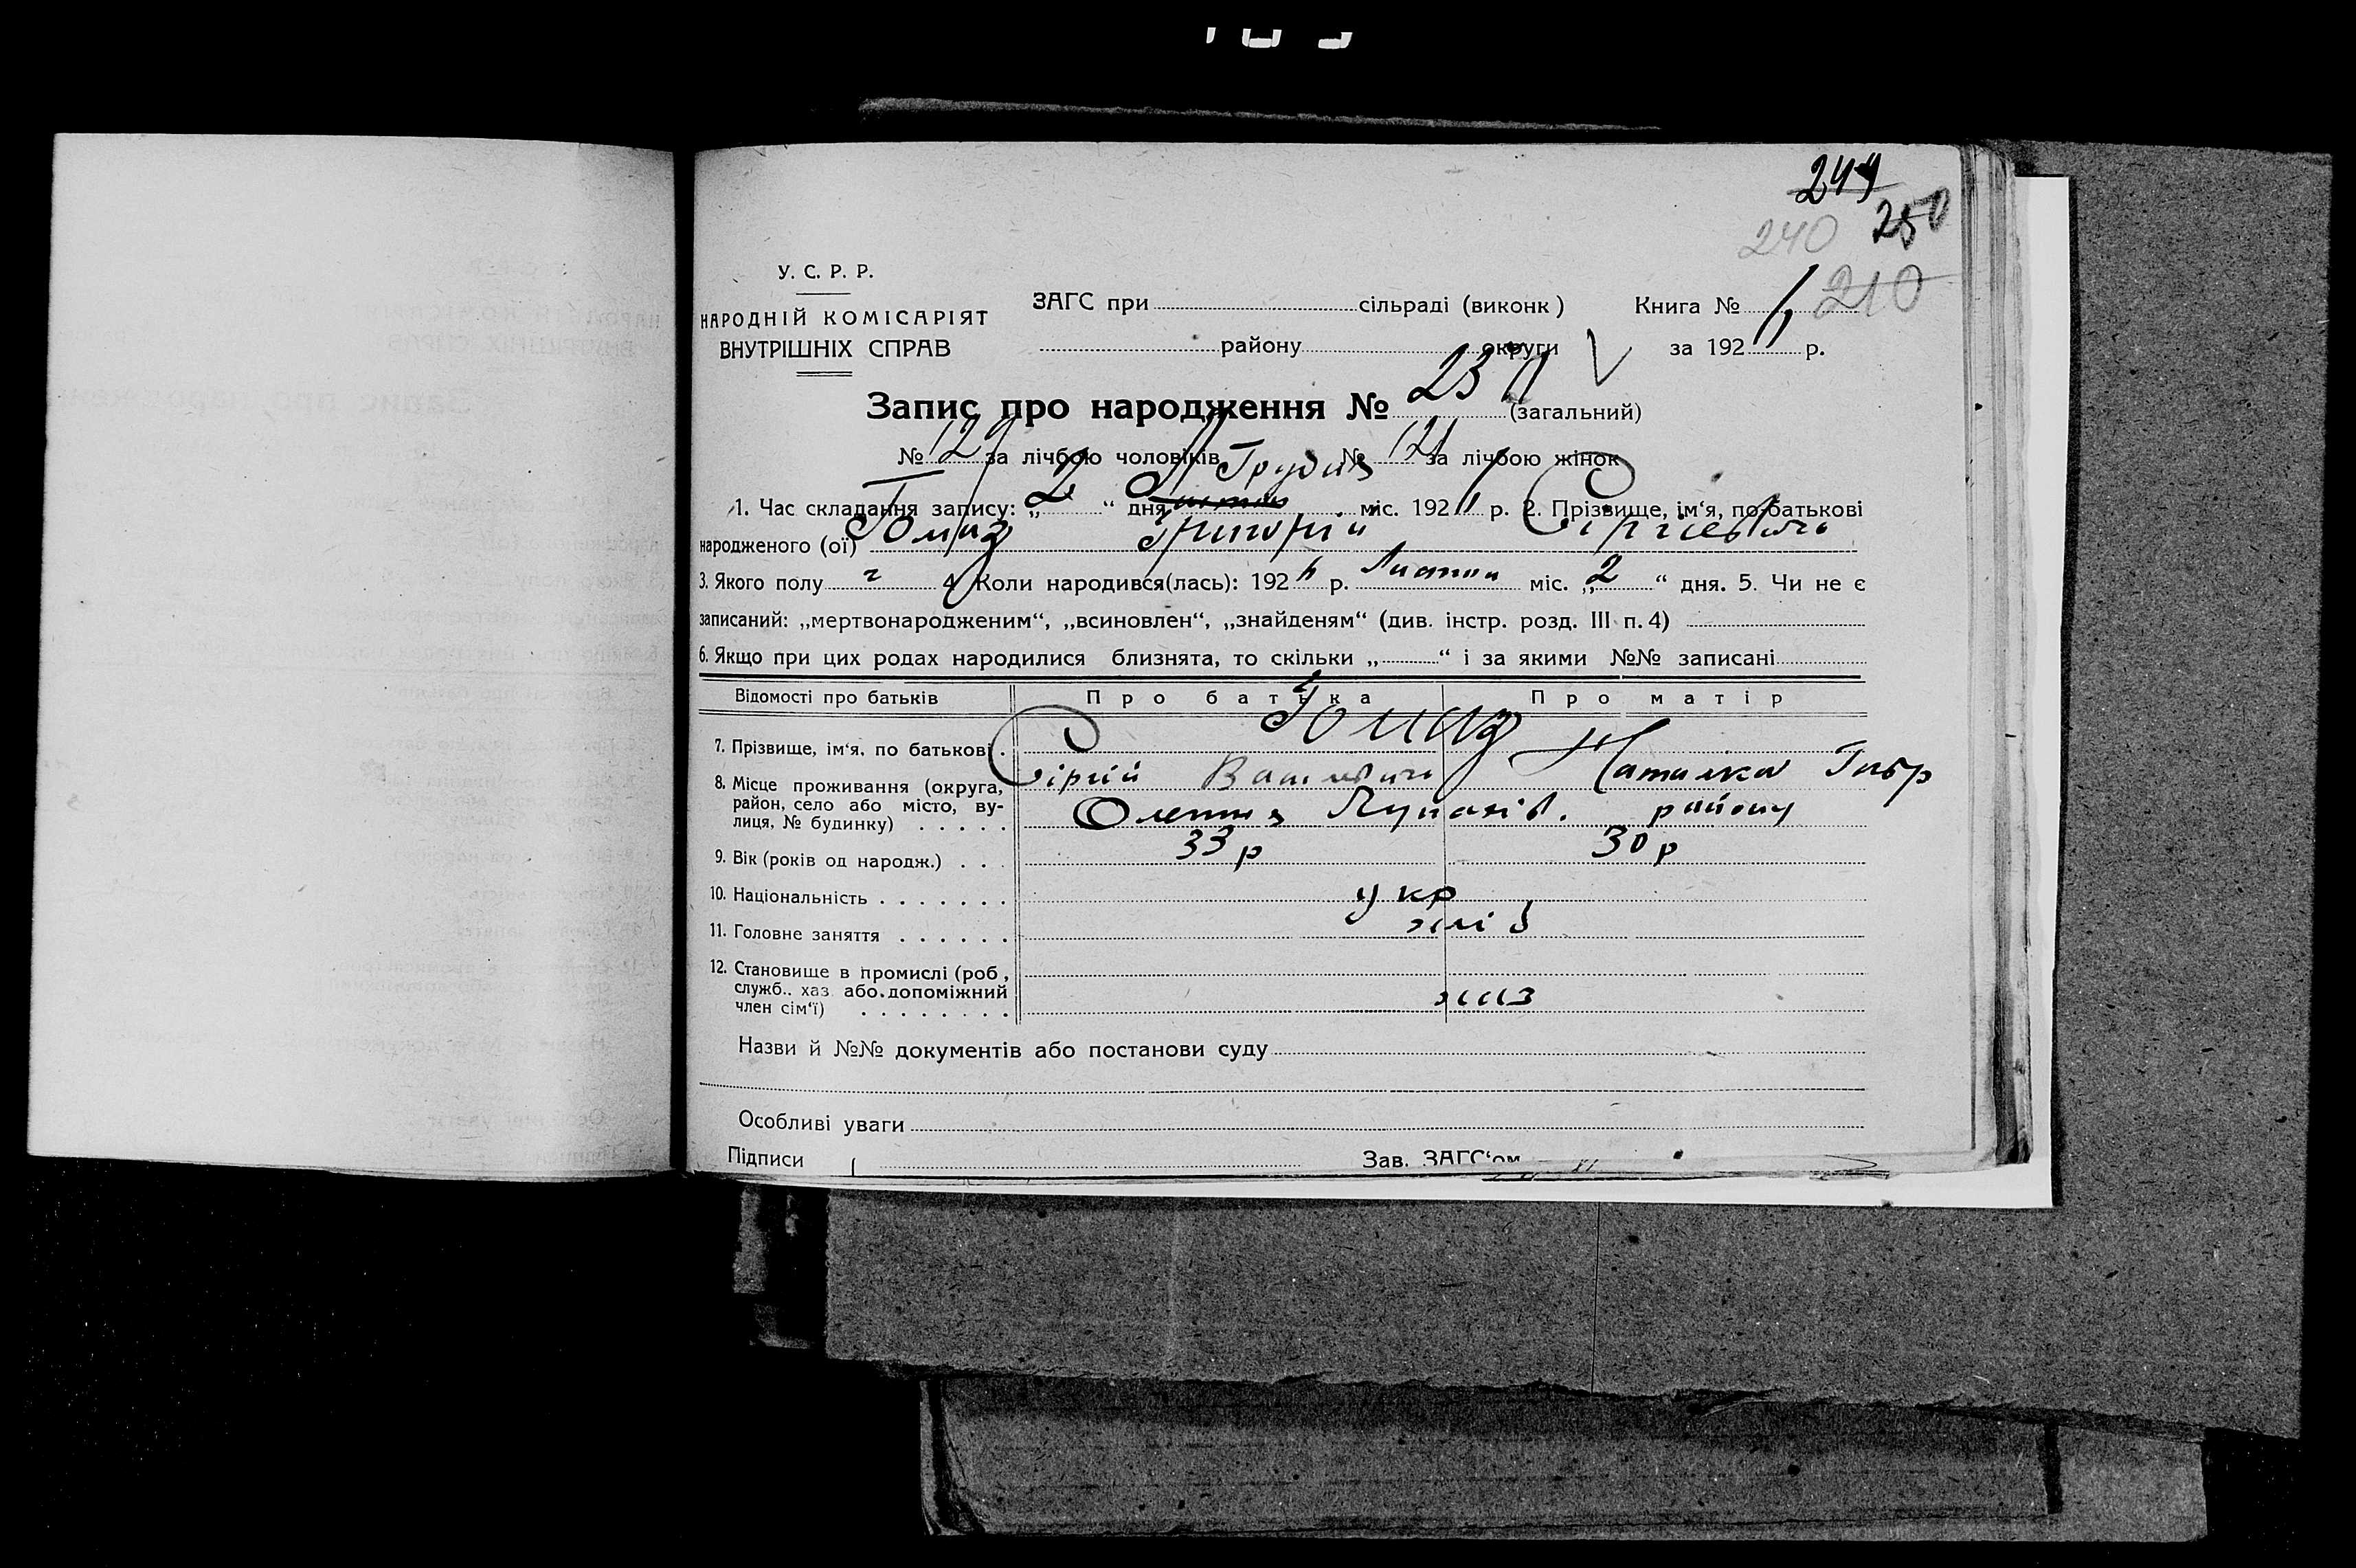 244
240 250
У. С. Р. Р.
210
НАРОДНІЙ КОМІСАРІЯТ
ВНУТРІШНІХ СПРАВ
ЗАГС при сільраді (виконк) Книга №
району округи за 192 р.
Запис про народження № 250 (загальний)
№ 129 за лічбою чоловіків № 121 за лічбою жінок
Грудня
1. Час складання запису: „ 2 “ дня міс. 192 р. 2. Прізвище, ім‘я, по батькові
народженого (ої) Гомаз Григорій Сіргіевич
3. Якого полу ч 4. Коли народився(лась): 192 р. Листоп міс. „ 2 “ дня. 5. Чи не є
записаний: „мертвонародженим“, „всиновлен“, „знайденям“ (див. інстр. розд. III п. 4)
6. Якщо при цих родах народилися близнята, то скільки „ “ і за якими №№ записані
Відомості про батьків Про батька Про матір
Гомаз
7. Прізвище, ім‘я, по батькові .
Сіргій Наталка Гавр
8. Місце проживання (округа,
район, село або місто, ву-
лиця, № будинку) . . . . . району
9. Вік (років од народж.) . . . 33 р 30 р
10. Національність . . . . . . . укр
11. Головне заняття . . . . . . хліб
12. Становище в промислі (роб,
служб.. хаз. або допоміжний
член сім‘ї) . . . . . . . . хаз
Назви й №№ документів або постанови суду
Особливі уваги
Підписи Зав. ЗАГС‘ом